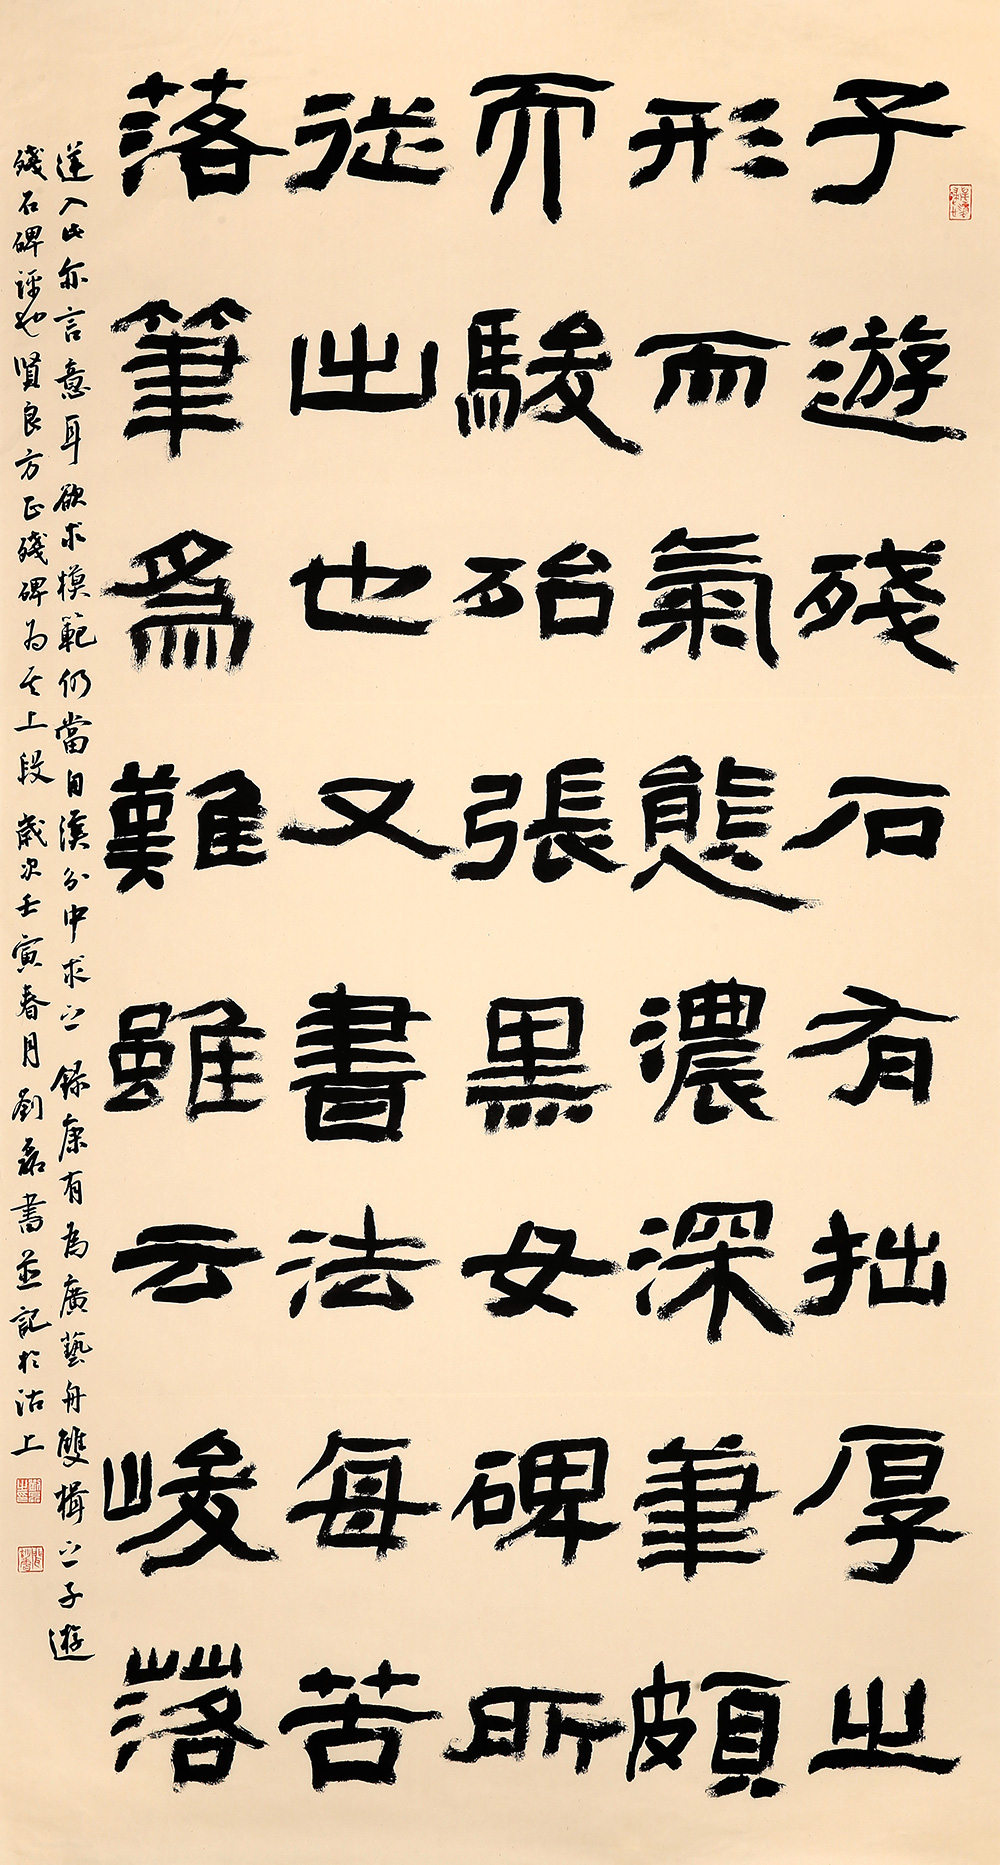 子遊殘石有拙厚之
形而氣態濃深筆頗
而駿殆張黑女碑所
從出也又書法每苦
落筆爲難雖云峻落
逆入此亦言意耳欲求模範仍當自漢分中求之 錄康有為廣藝舟雙楫之子遊
殘石碑評也賢良方正殘碑为其上段 歲次壬寅春月劉磊書並記於沽上